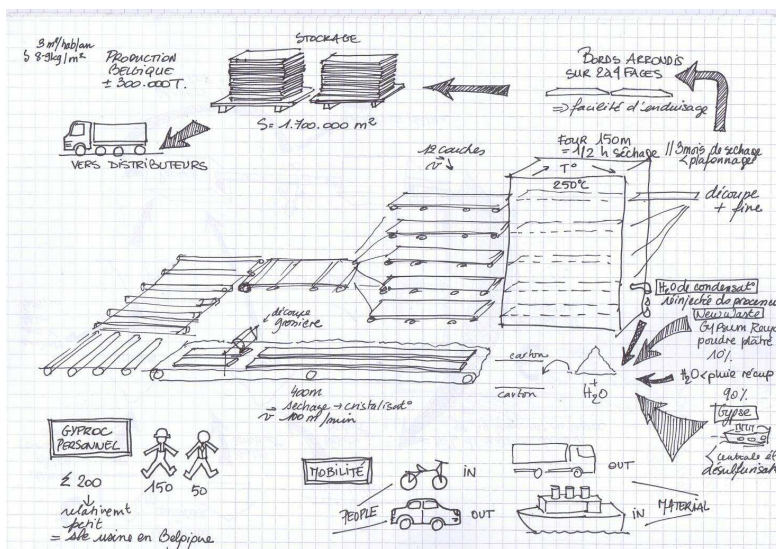 3 m²/hab/an
8-9kg/m²
PRODUCTION
BELGIQUE
± 300.000T.
STOCKAGE
S= 1.700.000 m²
VERS DISTRIBUTEURS
BORDS ARRONDIS
SUR 2 à 4 FACES
⇒ facilité d'enduisage
12 couches
FOUR 150m
= 1/2 h séchage
// 3 mois de séchage
plafonnage
T°
250°C
découpe
+ fine
H2O de condensat°
réinjecté ds processus
New waste
Gypsum
poudre plâtre
10%
H2O < pluie récup
90%
Gypse
centrale
désulfurisat
découpe
grossière
carton
carton
+
H2O
400m
séchage → cristalisat°
100 m/min
GYPROC
PERSONNEL
Σ 200
relativemt
petit
= sle usine en Belgique
150
50
MOBILITÉ
IN
PEOPLE
OUT
OUT
IN
MATERIAL